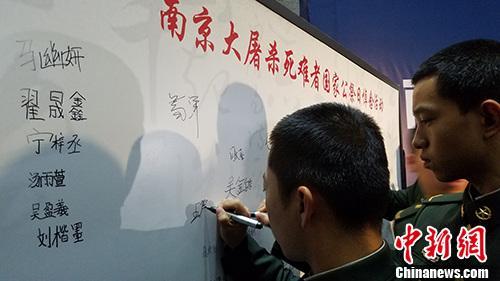 南京大屠杀死难者国家公祭日悼念活动
马幽妍
翟晟鑫
宁梓丞
汤雨萱
吴盈羲
刘楷墨
中新网
Chinanews.com